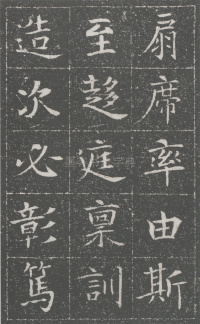 扇席率由斯
至趍庭稟訓
造次必彰篤